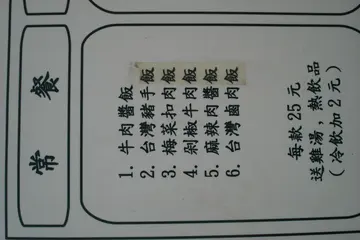 常餐
1. 牛肉醬飯
2. 台灣豬手飯
3. 梅菜扣肉飯
4. 剁椒牛肉飯
5. 麻辣肉醬飯
6. 台灣鹵肉飯
每款 25 元
送雞湯,熱飲品
(冷飲加 2 元)